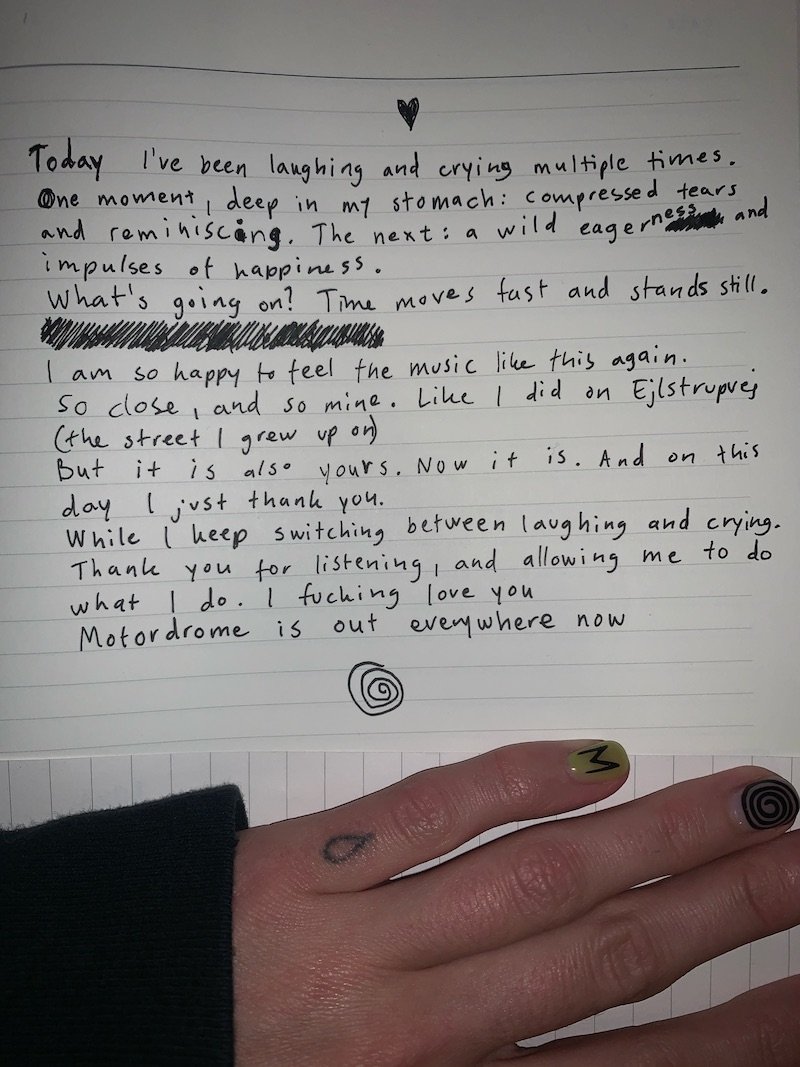 Today I've been laughing and crying multiple times.
One moment, deep in my stomach: compressed tears
and reminiscing. The next: a wild eagerness and
impulses of happiness.
What's going on? Time moves fast and stands still.
I am so happy to feel the music like this again.
So close, and so mine. Like I did on Ejlstrupvej
(the street I grew up on)
But it is also yours. Now it is. And on this
day I just thank you.
While I keep switching between laughing and crying.
Thank you for listening, and allowing me to do
what I do. I fucking love you
Motordrome is out everywhere now
M